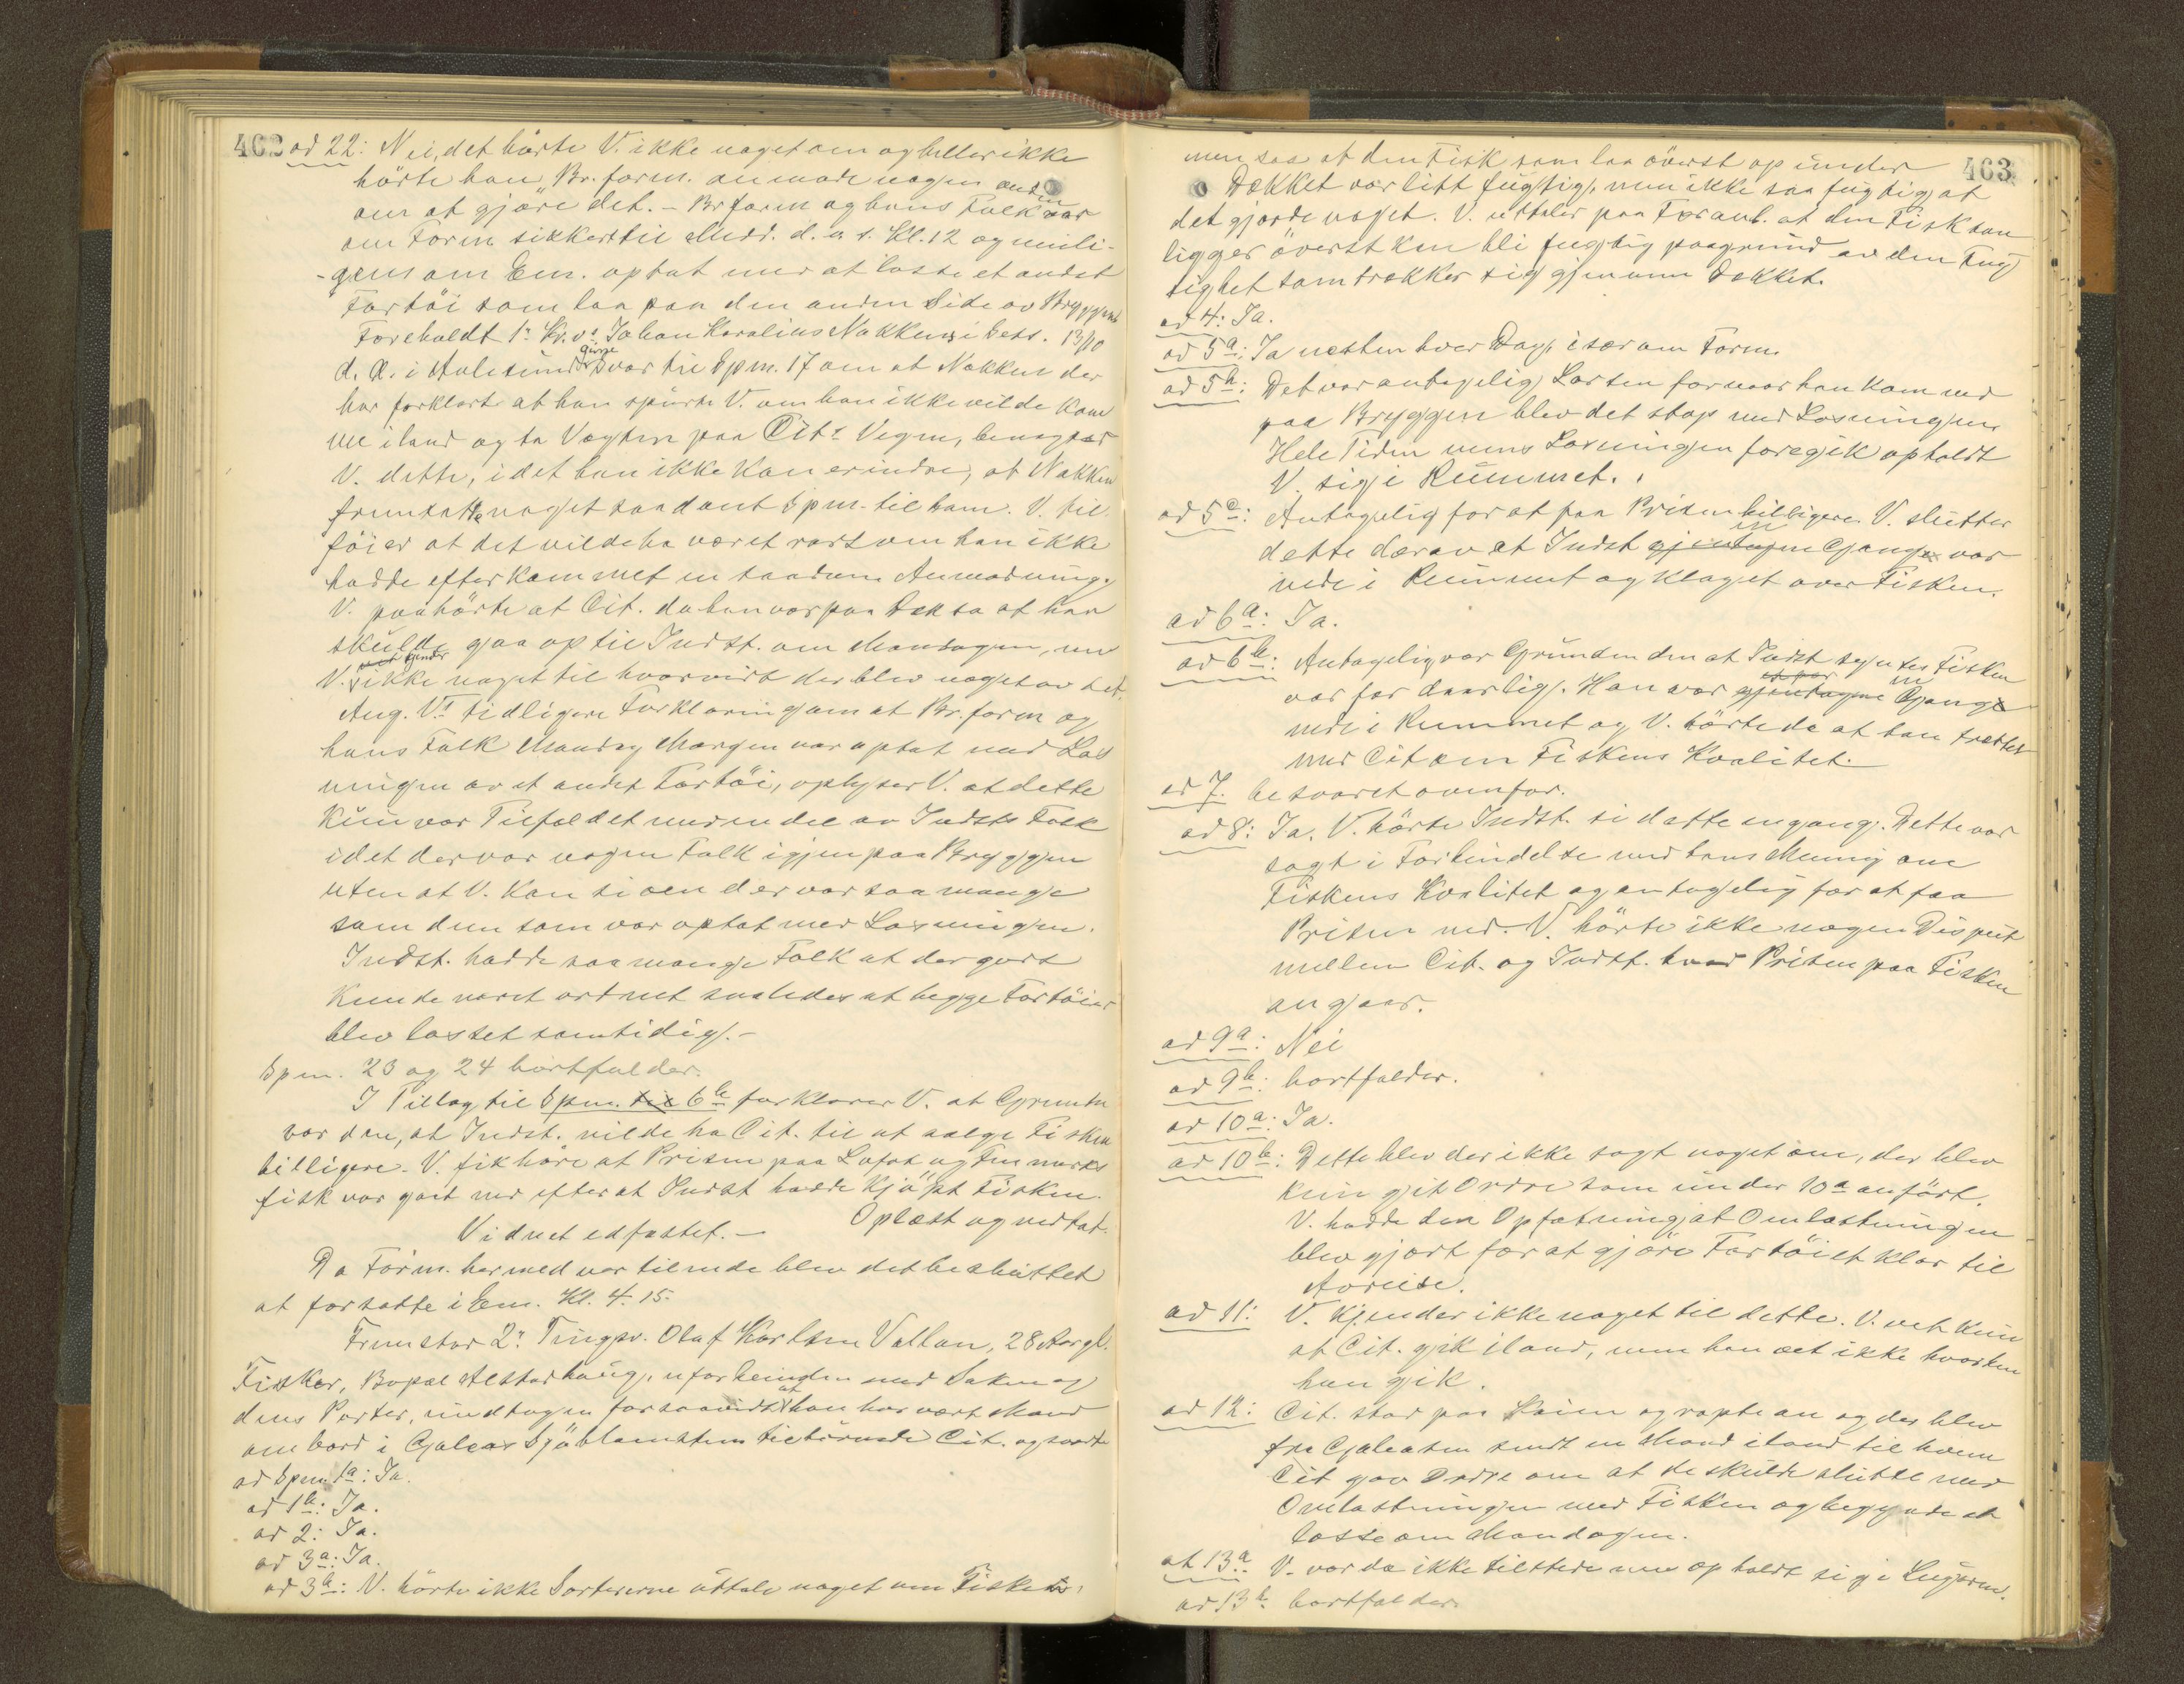 462
ad 22: Nei, det hørte V. ikke noget om og heller ikke
hørte han Br.form. anmode nogen anden
om at gjøre det. – Br form og hans Folk var
om Form. sikkert til Midd. d. v. s. Kl. 12 og muli-
-gens om Em. optat med at losse et andet
Fartöi som laa paa den anden Side av Bryggen
Foreholdt 1ste Kv. v. Johan Karolius Nakkens i Rets. 13/10
d. A. i Aalesund givne Svar til Spm. 17 om at Nakken der
har forklart at han spurte V. om han ikke vilde kom
me iland og ta Vægten paa Cits Vegne, benegter
V. dette, idet han ikke kan erindre, at Nakken
fremsatte noget saadant Spm. til ham. V. til
föier at det vilde ha været rart om han ikke
hadde efterkommet en saadan Anmodning.
V. paahörte at Cit. da han var paa Dæk sa at han
skulde gaa op til Indst. om Mandagen, men
V. kjender ikke noget til hvorvidt der blev noget av det.
Ang. Vs tidligere Forklaring om at Br.form og
hans Folk Mandag Morgen var optat med Los
ningen av et andet Fartöi, oplyser V. at dette
kun var Tilfældet med en del av Indsts Folk
idet der var nogen Folk igjen paa Bryggen
uten at V. kan si om der var saa mange
som dem som var optat med Losningen.
Indst. hadde saa mange Folk at der godt
kunde været ordnet saaledes at begge Fartöier
blev losset samtidig. –
Spm. 23 og 24 bortfalder.
I Tillæg til Spm. til 6b forklarer V. at Grunden
var den, at Indst. vilde ha Cit. til at sælge Fisken
billigere. V. fik höre at Prisen paa Lofot og Finmarks
fisk var gaat ned efter at Indst hadde kjöpt Fisken.
Oplæst og vedtat.
Vidnet edfæstet. –
Da Form. hermed var tilende blev det besluttet
at fortsætte i Em. Kl. 4.15.
Fremstod 2. Tingsv. Olaf Karlsen Vallan, 28 Aar gl.
Fisker, Bopæl Alstadhaug, uforbunden med Saken og
dens Parter, undtagen forsaavidt at han har vært Mand
ombord i Galeas Sjöblomsten tilhörende Cit. og svarte
ad Spm. 1a: Ja.
ad 1b: Ja.
ad 2: Ja.
ad 3a: Ja.
ad 3b: V. hörte ikke Sortererne uttale noget om Fisken,
463
men saa at den Fisk som laa överst op under
Dækket var litt fugtig, men ikke saa fugtig at
det gjorde noget. V. uttaler paa Foranl. at den Fisk som
ligger överst kan bli fugtig paagrund av den Fug
tighet som trækker sig gjennem Dækket.
ad 4: Ja.
ad 5a: Ja næsten hver Dag, især om Form.
ad 5b: Det var antagelig Lasten for naar han kom ned
paa Bryggen blev det stop med Losningen.
Hele Tiden mens Losningen foregik opholdt
V. sig i Rummet.
ad 5c: Antagelig for at faa Prisen billigere. V. slutter
dette derav at Indst gjentagne en Gang var
nede i Rummet og klaget over Fisken.
ad 6a: Ja.
ad 6b: Antagelig var Grunden den at Indst syntes Fisken
var for daarlig. Han var et par gjentagne en Gang
nede i Rummet og V. hörte da at han trættet
med Cit om Fiskens Kvalitet.
ad 7. besvaret ovenfor.
ad 8: Ja. V. hörte Indst. si dette engang. Dette var
sagt i Forbindelse med hans Mening om
Fiskens Kvalitet og antagelig for at faa
Prisen ned. V. hörte ikke nogen Disput
mellem Cit. og Indst. hvad Prisen paa Fisken
angaar.
ad 9a: Nei
ad 9b: bortfalder.
ad 10a: Ja.
ad 10b: Dette blev der ikke sagt noget om, der blev
kun git Ordre som under 10a anfört.
V. hadde den Opfatning at Omlastningen
blev gjort for at gjöre Fartöiet klar til
Avreise.
ad 11: V. kjender ikke noget til dette. V. vet kun
at Cit. gik iland, men han vet ikke hvorhen
han gik.
ad 12: Cit. stod paa Kaien og ropte an og der blev
fra Galeasen sendt en Mand iland til hvem
Cit gav Ordre om at de skulde slutte med
Omlastningen med Fisken og begynde at
losse om Mandagen.
at 13a: V. var da ikke tilstede men opholdt sig i Lugaren.
ad 13b: bortfalder.